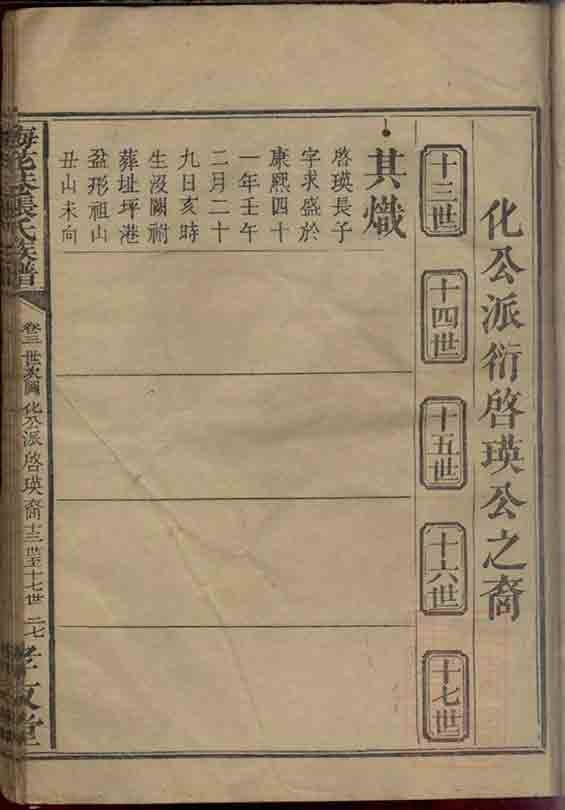 化公派衍啓瑛公之裔
十三世
十四世
十五世
十六世
十七世
其熾
啓瑛長子
字求盛於
康熙四十
一年壬午
二月二十
九日亥時
生没闕祔
葬址坪港
盆形祖山
丑山未向
張氏族譜
卷三 世次圖 化公派啓瑛裔 十三世至十七世 二七
孝友堂